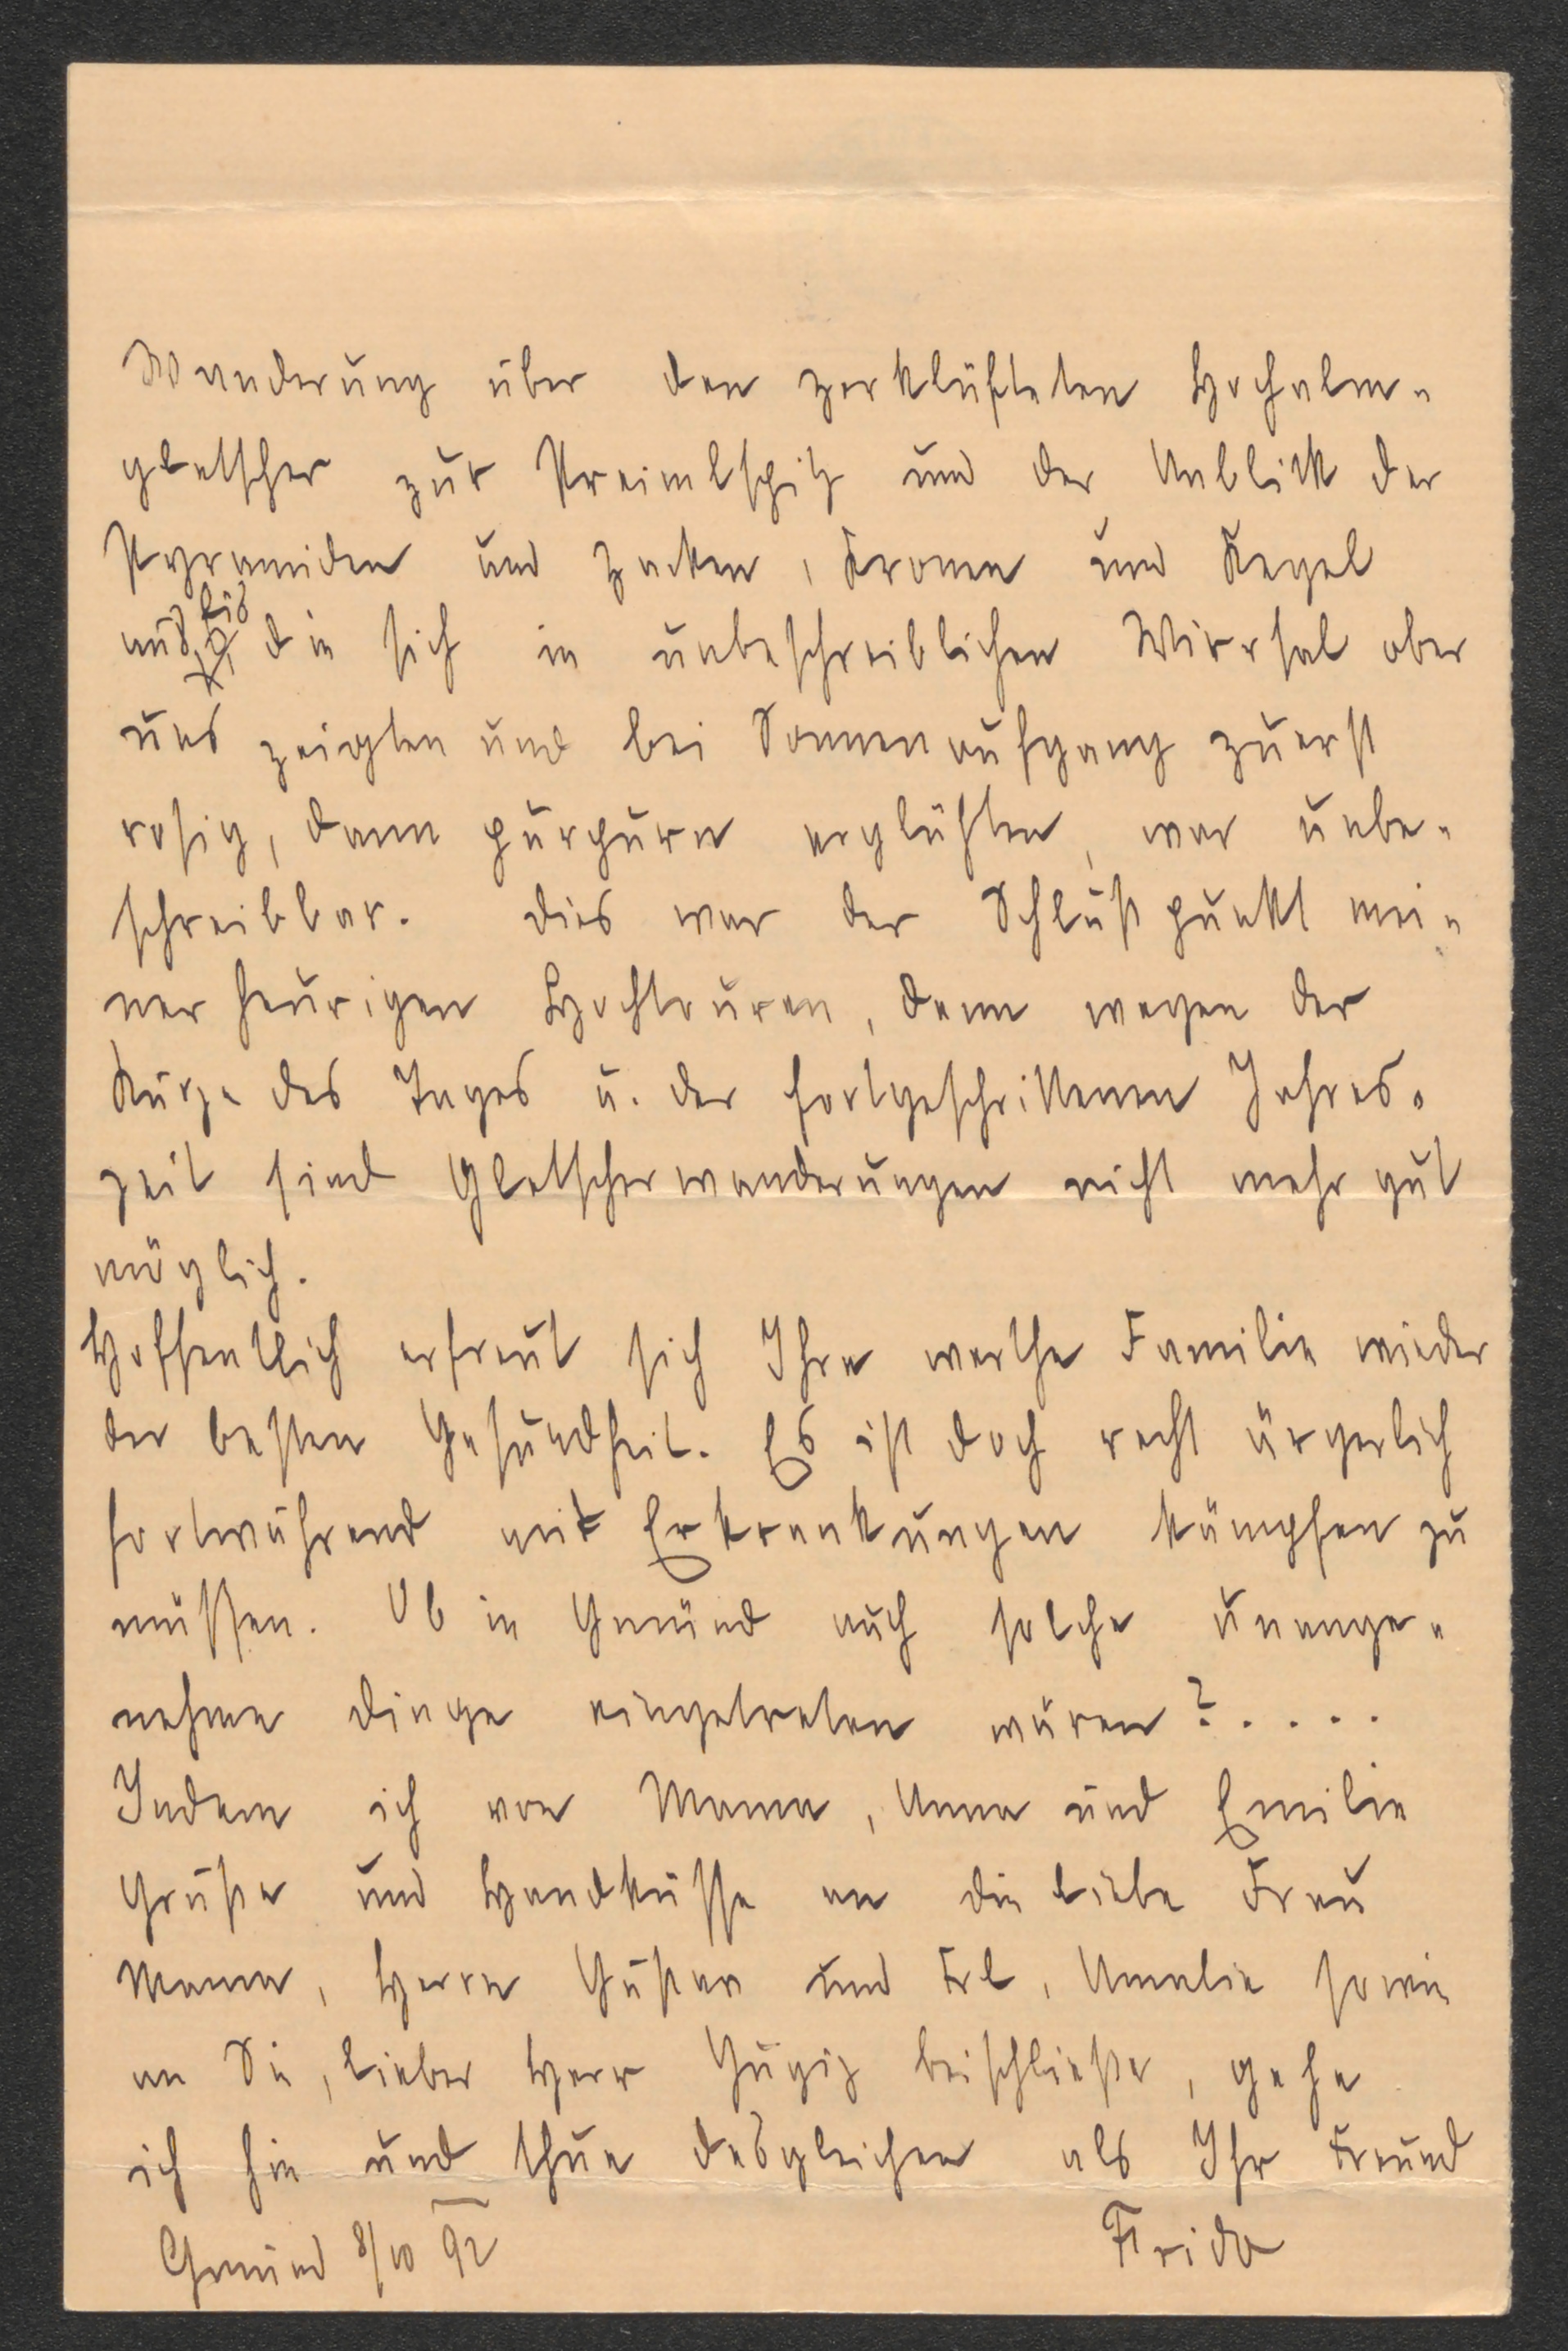 Wanderung über den zerklüfteten Hochalm-
gletscher zur Preimlspitz und der Anblick der
Pyramiden und Zacken, Kronen und Kegel
aus Eis die sich in unbeschreiblichen Wirrsal ober
uns zeigten und bei Sonnenaufgang zuerst
rosig, dann purpurn erglühten, war unbe-
schreibbar. Dies war der Schlußpunkt mei-
ner heurigen Hochtouren, denn wegen der
Kürze des Tages u. der fortgeschrittenen Jahres-
zeit sind Gletscherwanderungen nicht mehr gut
möglich.
Hoffentlich erfreut sich Ihre werthe Familie wieder
der besten Gesundheit. Es ist doch recht ärgerlich
fortwährend mit Erkrankungen kämpfen zu
müssen. Ob in Gmünd auch solche unange-
nehme Dinge eingetreten wären?....
Indem ich von Mama, Anna und Emilie
Grüße und Handküsse an die liebe Frau
Mama, Herrn Gustav und Frl. Amalie sowie
an Sie, lieber Herr Gugiz beischließe, gehe
ich hin und thue desgleichen als Ihr Freund
Gmünd 8/10 92 Frido